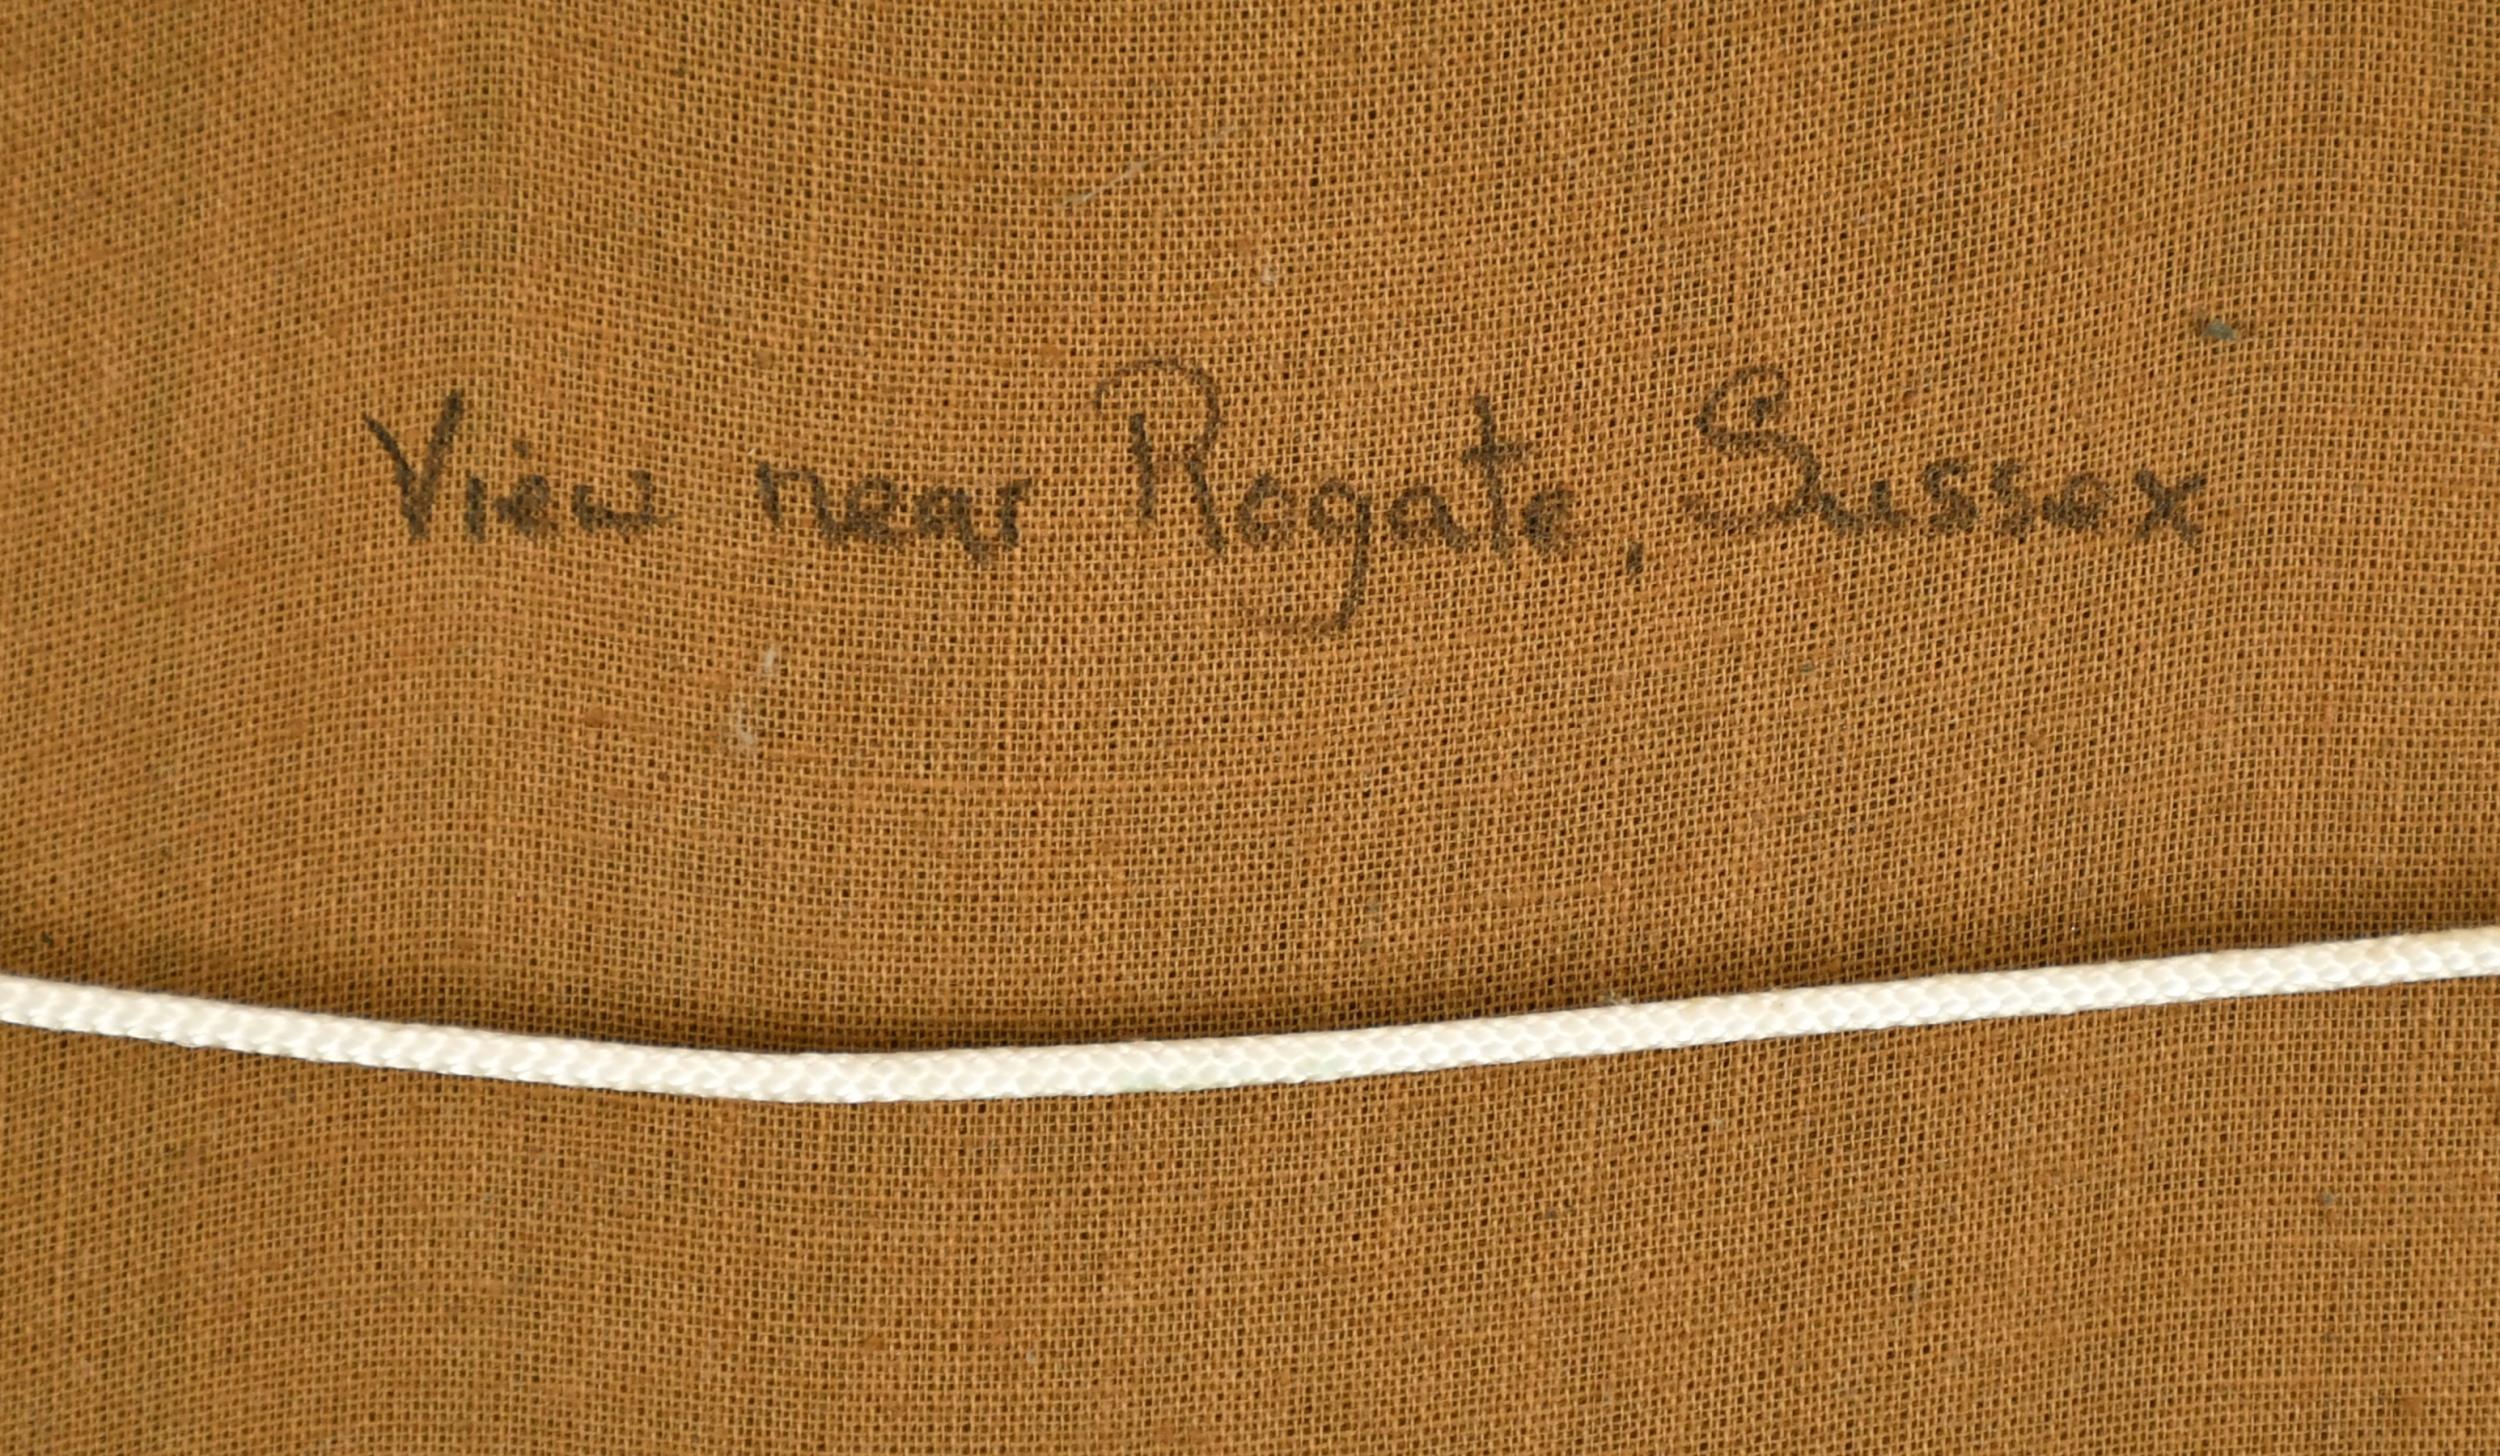 View near Rogate, Sussex